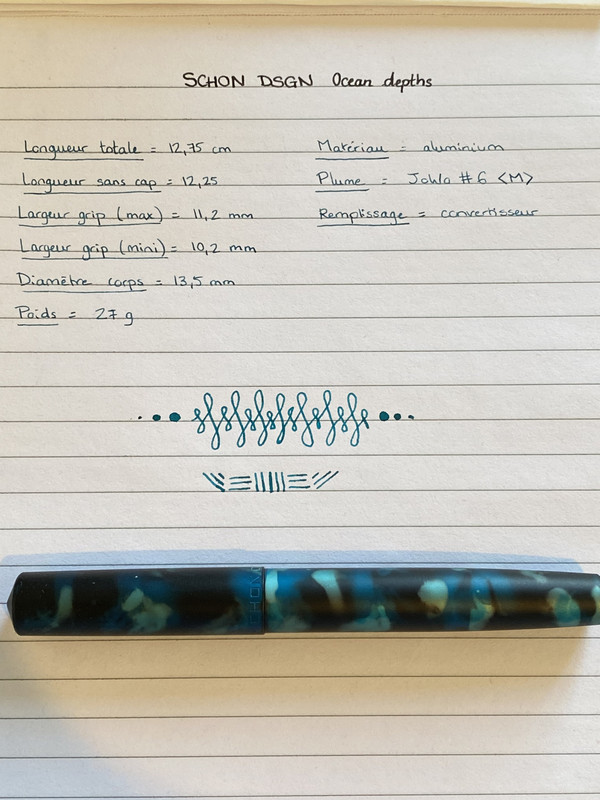 SCHON DSGN Ocean depths
Longueur totale = 12,75 cm
Longueur sans cap = 12,25
Largeur grip (max) = 11,2 mm
Largeur grip (mini) = 10,2 mm
Diamètre corps = 13,5 mm
Poids = 27 g
Matériau = aluminium
Plume = JoWo #6 <M>
Remplissage = convertisseur